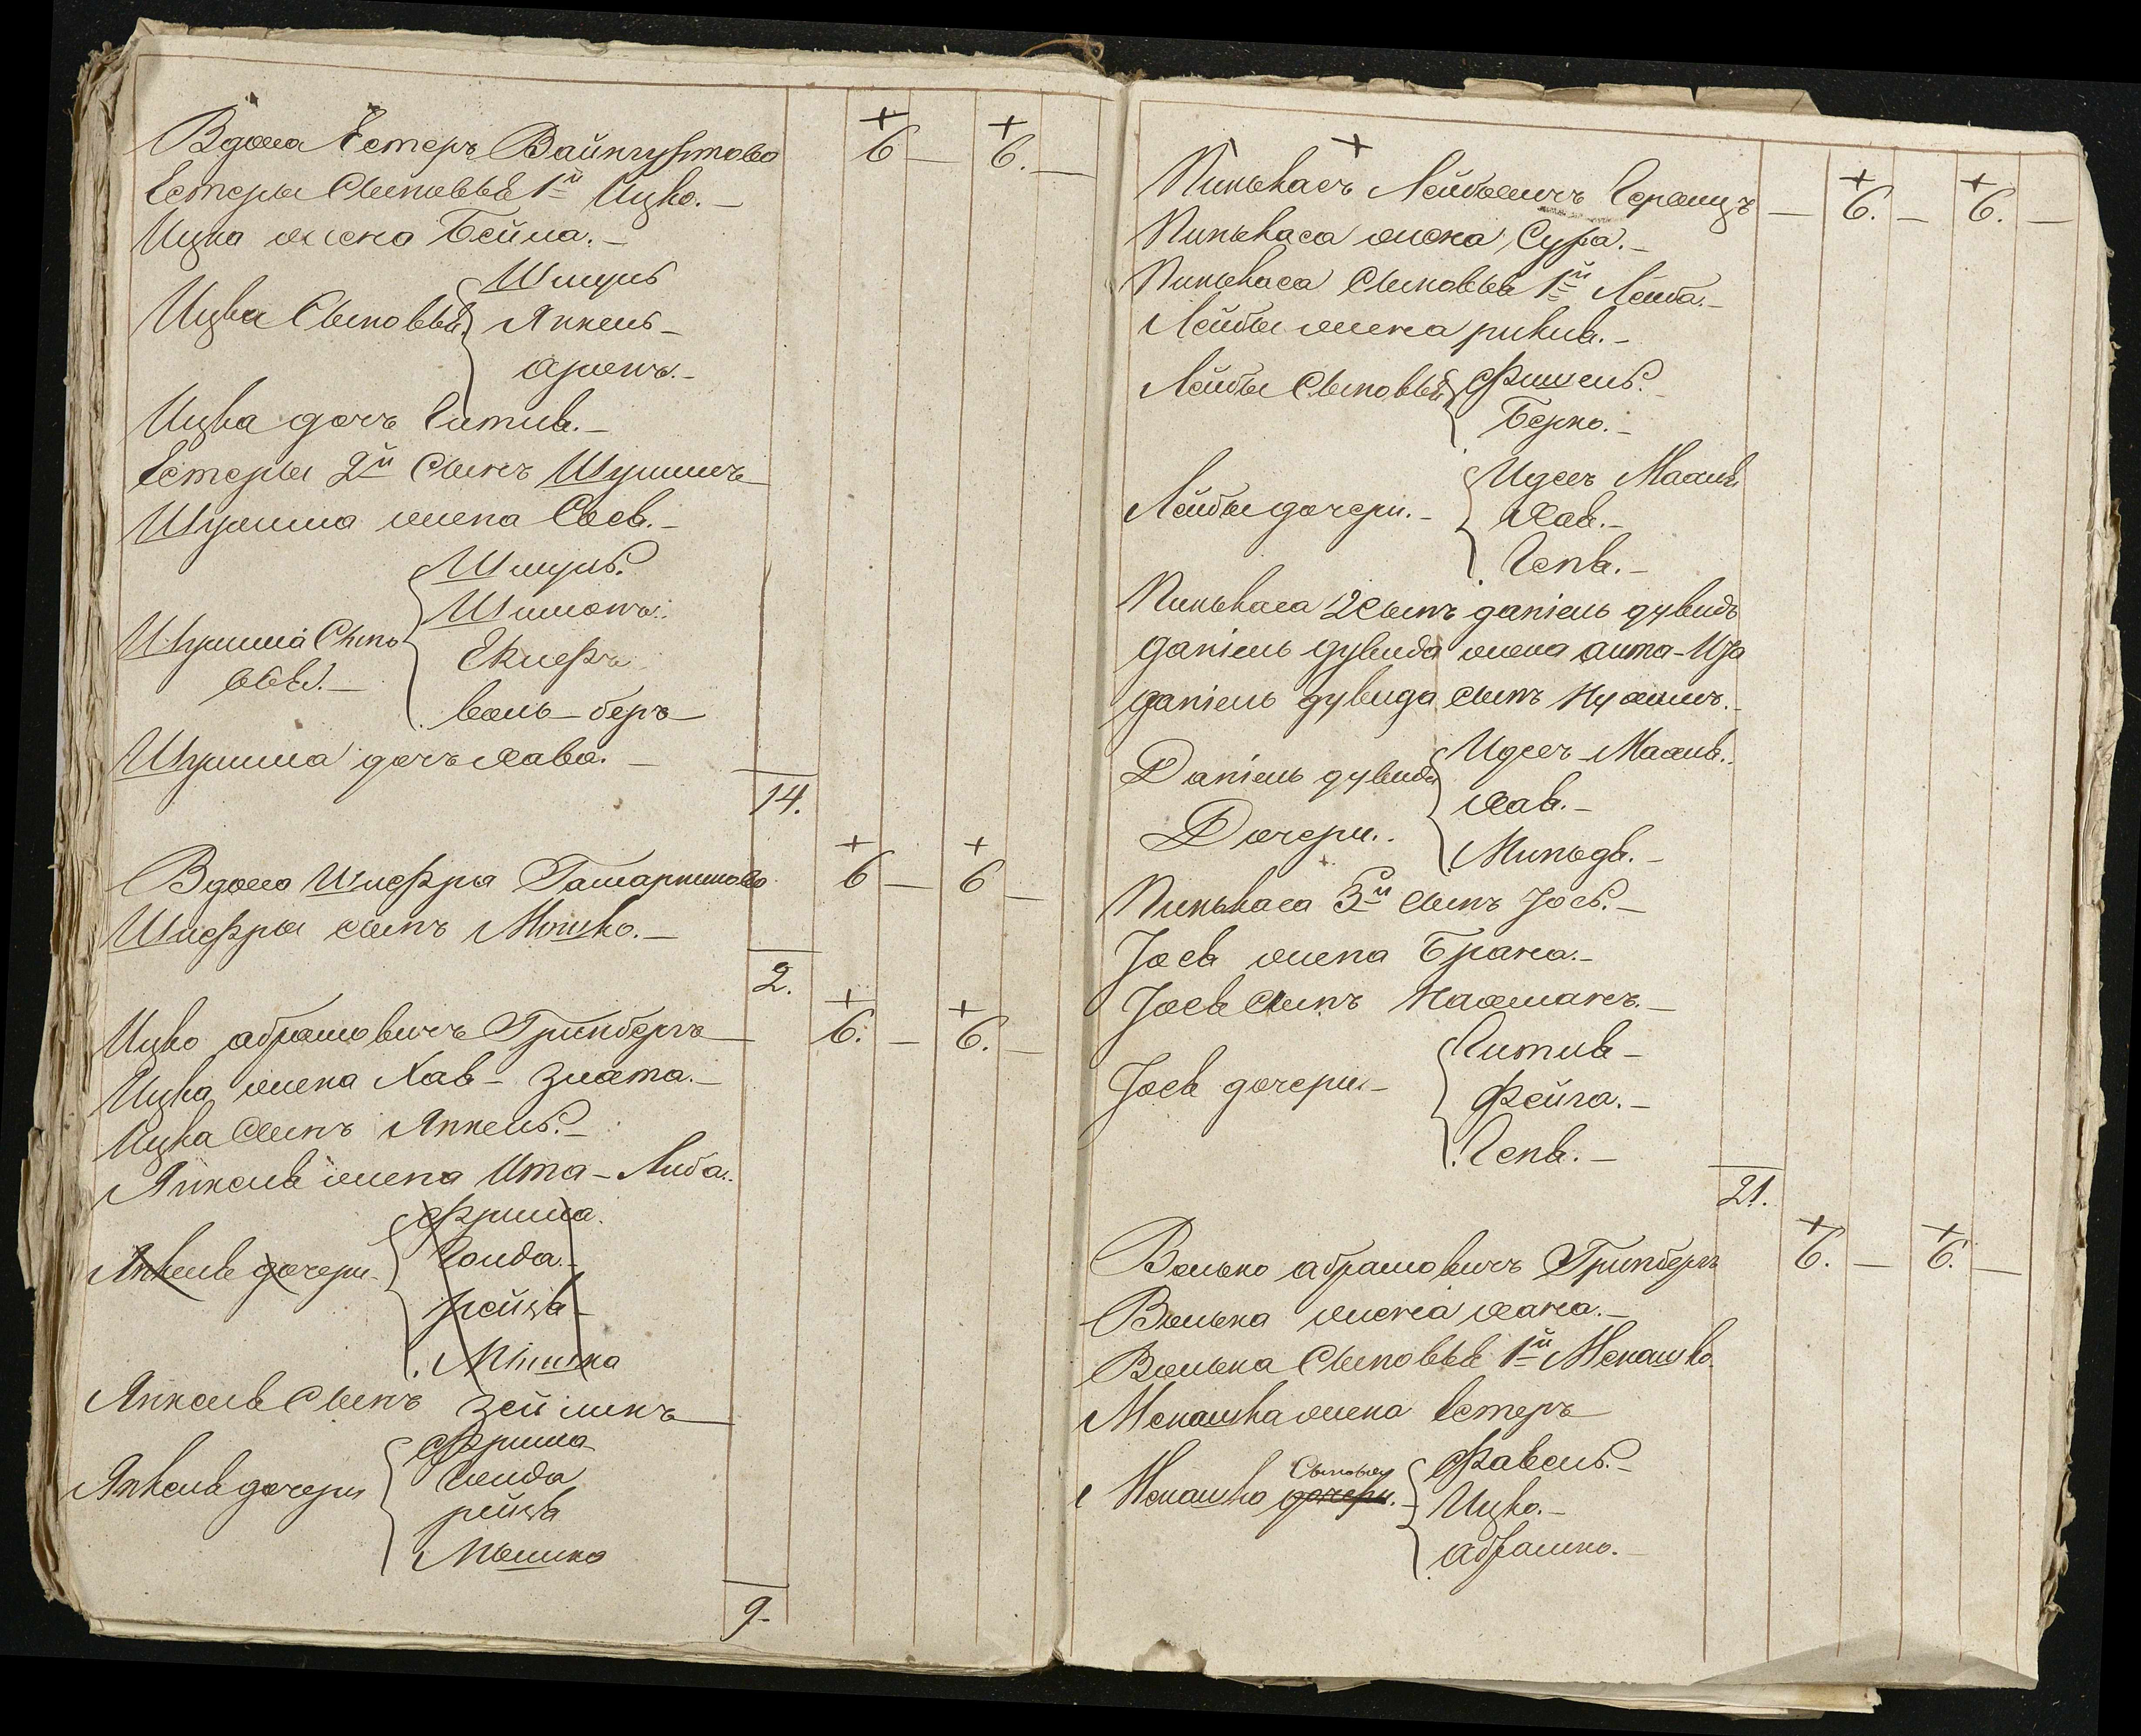 Вдова Естеръ
+ 6 — + 6. —
Естеры Сыновья 1й Ицко. —
Ицка жена Бейла. —
Ицка Сыновья
Шмуль
Янкель —
аронъ. —
Ицка дочь Гитля. —
Естеры 2й Сынъ
жена Сося. —
Шмуль.
Шимонъ.
Сыно
вья. —
воль-беръ —
дочь хава. —
14.
Вдова Шпефра
+ 6 — + 6 —
Шпефры сынъ Мошко. —
2.
Ицко абрамовичъ Гринбергъ —
+ 6. — + 6. —
Ицка жена Хая - злата. —
Ицка Сынъ Янкель. —
Янкеля жена Ита - Либа.
Янкеля дочери —
Фрима.
Голда. —
рейзя —
Мишка
Янкеля Сынъ зейликъ —
Янкеля дочери
Фрима
Голда
рейзя
Мышка
9 —
+
Пинькасъ Лейбовичъ
— + 6. — + 6. —
Пинькаса жена Сура. —
Пинькаса Сыновья 1й Лейба. —
Лейбы жена ривка. —
Лейбы Сыновья
Фишель.
Берко. —
Лейбы дочери. —
Идесъ Махля
Хая. —
Геня. —
Пинькаса 2 Сынъ даніель дувидъ
даніель дувида жена
даніель дувида сынъ Нухимъ. —
Даніель дувида
Дочери.
Идесъ - Махля.
Хая. —
Миндя. —
Пинькаса 3й Сынъ Іось. —
Іося жена Брана. —
Іося Сынъ Нахманъ. —
Іося дочери —
Гитля —
Фейга. —
Геня. —
21.
Волько абрамовичъ Гринбергъ
+ 6. — + 6. —
Волька жена хана. —
Волька Сыновья 1й Менашко.
Менашка жена Естеръ
Сыновья
Менашко дочери. —
Фавель. —
Ицко. —
абрамко. —